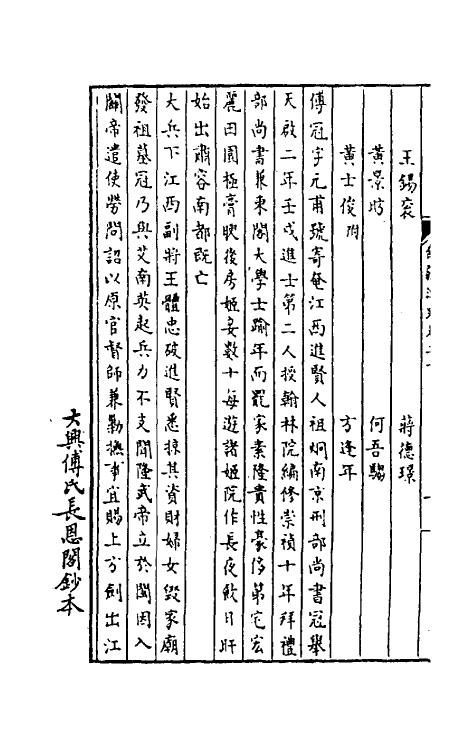 王錫袞　蔣德璟
黃景昉　何吾騶
黃士俊附　方逢年
傅冠字元甫號寄菴江西進賢人祖炯南京刑部尚書冠舉
天啟二年壬戌進士第二人授翰林院編修崇禎十年拜禮
部尚書兼東閣大學士踰年而罷家素隆貴性豪侈第宅宏
麗田園極膏腴後房姬妾數十每遊諸姬院作長夜飲日旰
始出肅容南都既亡
大兵下江西副將王體忠破進賢悉掠其資財婦女毀家廟
發祖墓冠乃與艾南英起兵力不支聞隆武帝立於閩因入
關帝遣使勞問詔以原官督師兼勦撫事宜賜上方劍出江
大興傅氏長恩閣鈔本